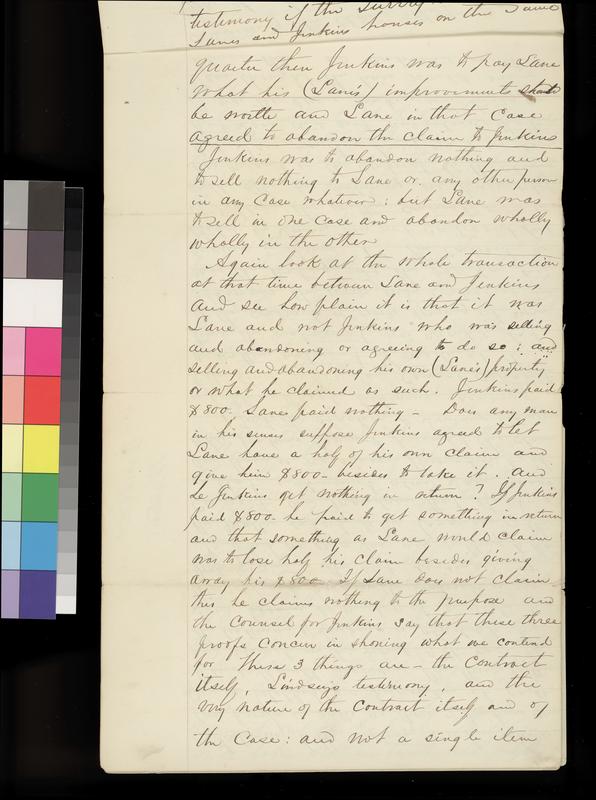 testimony if the Survey
Lanes and Jenkins houses on the same
quarter then Jenkins was to pay Lane
what his (Lane's) improvements should
be worth and Lane in that case
agreed to abandon the claim to Jenkins
Jenkins was to abandon nothing and
to sell nothing to Lane or any other person
in any case whatever: but Lane was
to sell in one case and abandon wholly
wholly in the other
Again look at the whole transaction
at that time between Lane and Jenkins
and see how plain it is that it was
Lane and not Jenkins who was selling
and abandoning or agreeing to do so: and
selling and abandoning his own (Lane's) property
or what he claimed as such. Jenkins paid
$800. Lane paid nothing - Does any man
in his senses suppose Jenkins agreed to let
Lane have a half of his own claim and
give him $800 - besides to take it. And
Le Jenkins get nothing in return? If Jenkins
paid $800 - he paid to get something in return
and that something as Lane would claim
was to lose half his claim besides giving
away his $800. If Lane does not claim
this he claims nothing to the purpose and
the counsel for Jenkins say that these three
proofs concur in showing what we contend
for These 3 things are - the Contract
itself, Lindsey's testimony, and the
very nature of the Contract itself and of
the Case: and not a single item